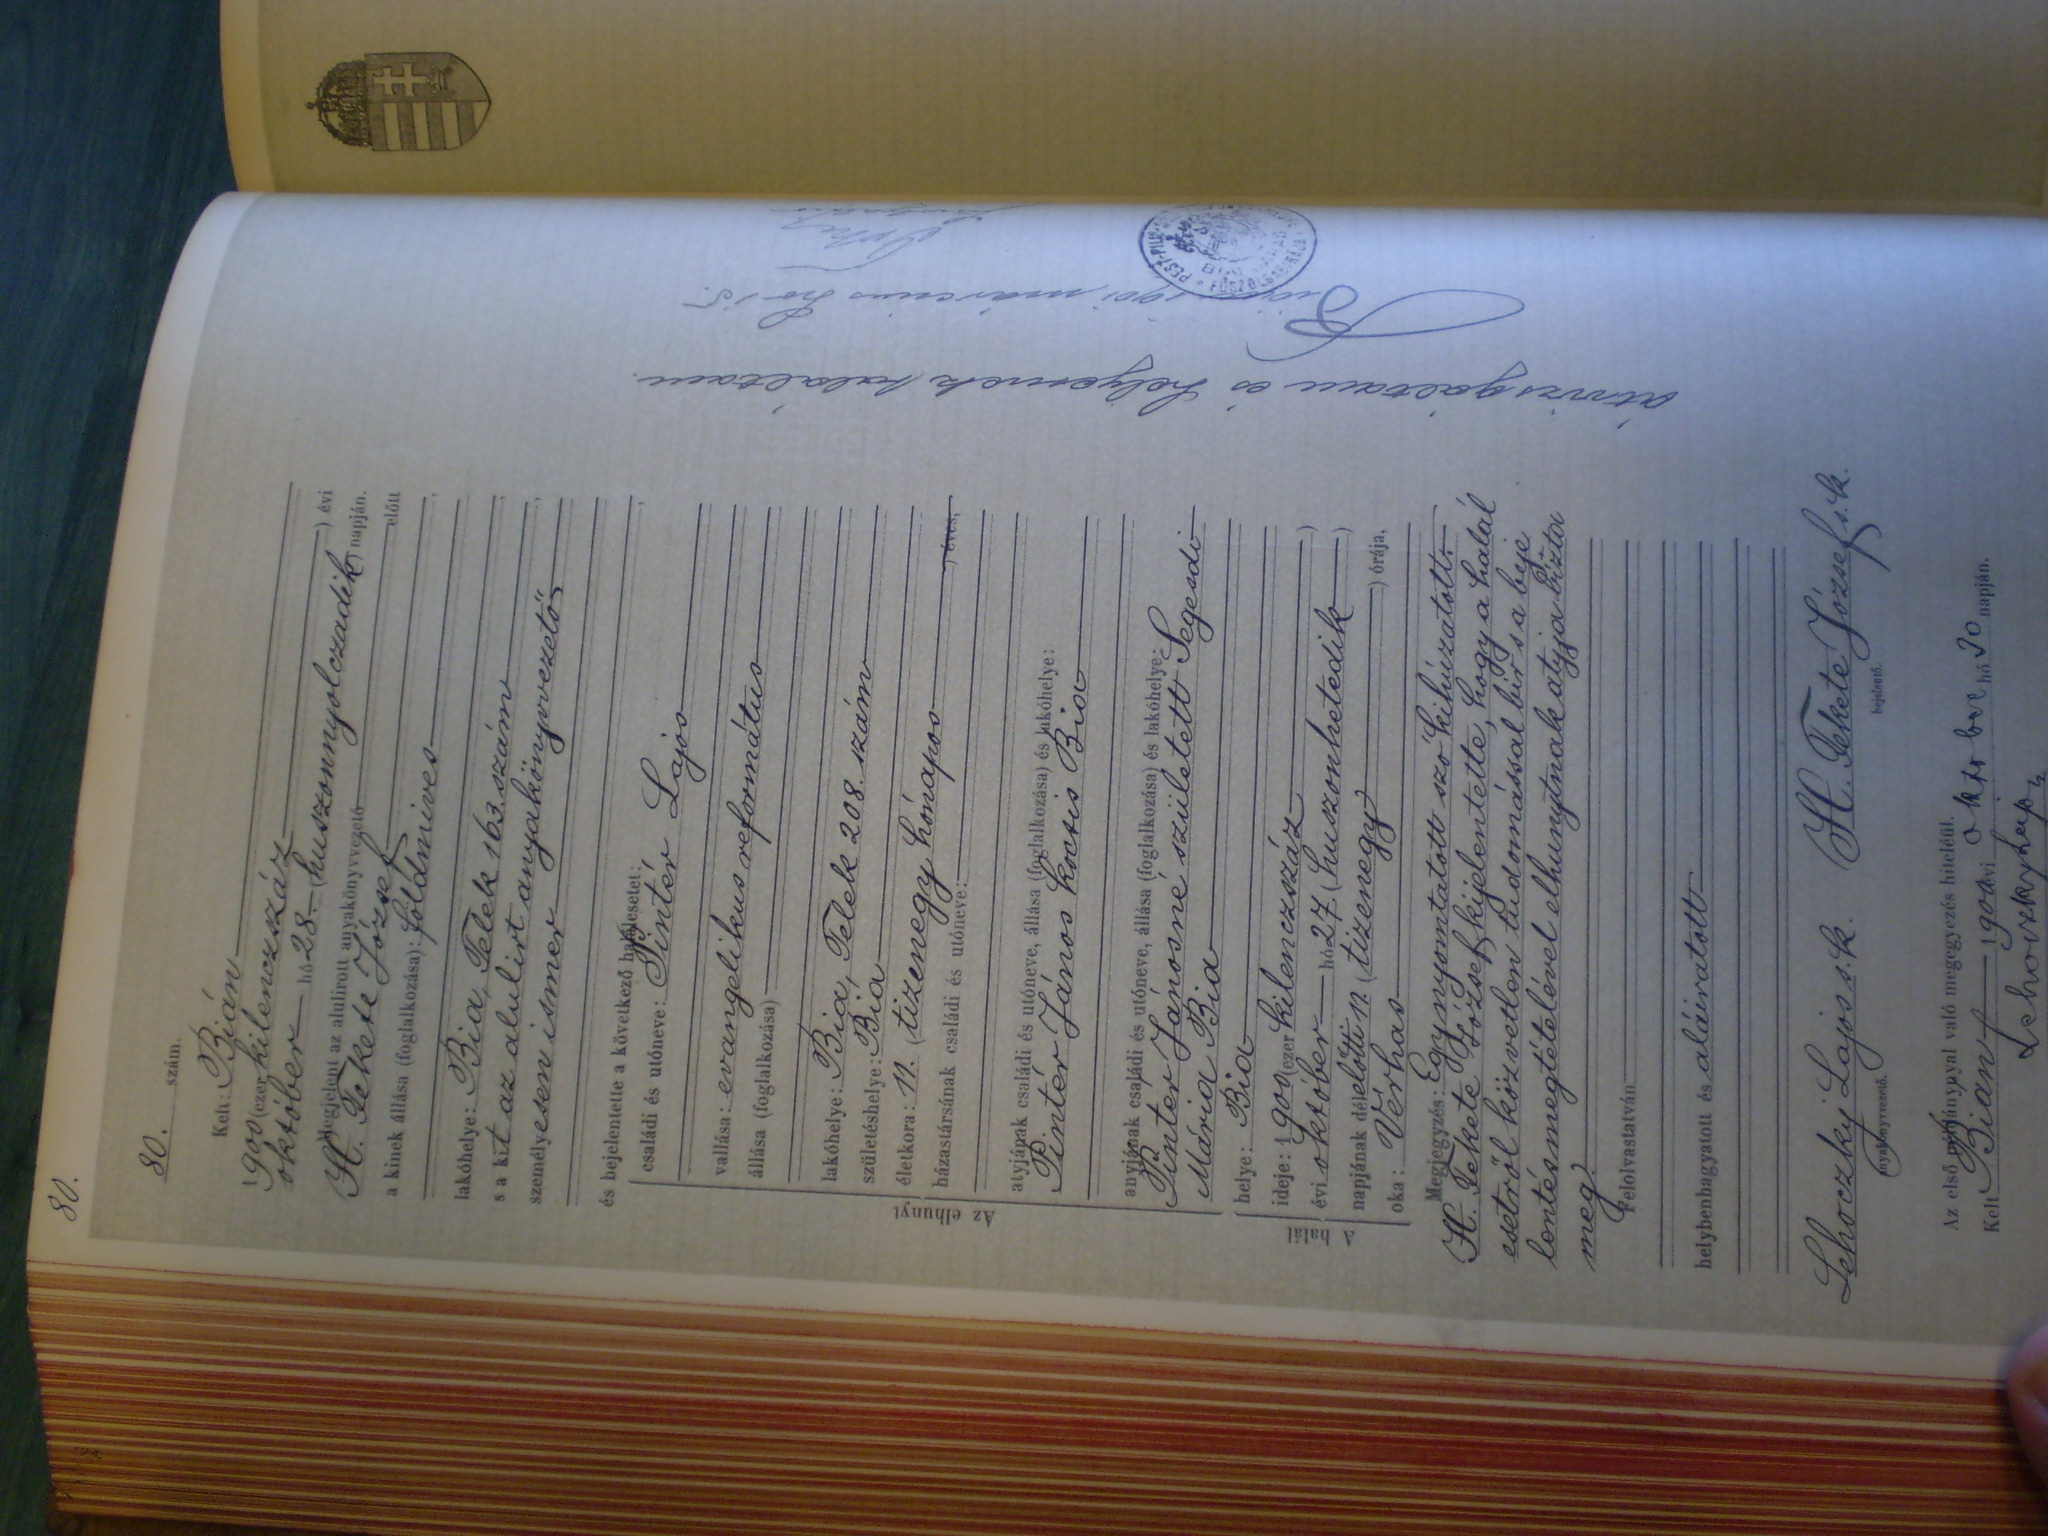 80.
80. szám.
Kelt: Bián
1900 (ezer kilenczszáz
október hó 28. (huszonnyolczadik) évi napján.
Megjelent az alulirott anyakönyvvezető előtt
H. Fekete József
a kinek állása (foglalkozása): földmíves
lakóhelye: Bia, Telek 163. szám
s a kit az alulirt anyakönyvvezető
személyesen ismer
és bejelentette a következő halálesetet:
Az elhunyt
családi és utóneve: Pintér Lajos
vallása: evangelikus református
állása (foglalkozása)
lakóhelye: Bia, Telek 208. szám
születéshelye: Bia
életkora: 11. (tizenegy hónapos ) éves,
házastársának családi és utóneve:
atyjának családi és utóneve, állása (foglalkozása) és lakóhelye:
Pintér János kocsis Bia
anyjának családi és utóneve, állása (foglalkozása) és lakóhelye:
Pintér Jánosné született Segesdi
Mária Bia
A halál
helye: Bia
ideje: 1900 (ezer kilenczszáz )
évi október hó 27. (huszonhetedik )
napjának délelőtti 11 (tizenegy ) órája,
oka: Vérhas
Megjegyzés: Egy nyomtatott szó kihúzatott.
H. Fekete József kijelentette, hogy a halál
esetről közvetlen tudomással bir s a beje
lentés megtételével elhunytnak atyja bizta
meg.
Felolvastatván
helybenhagyatott és aláiratott
Lehoczky Lajos s.k. H. Fekete József s.k.
anyakönyvvezető. bejelentő.
Az első példánynyal való megegyezés hiteléül.
Kelt Bián 1900 évi október hó 30 napján.
Lehoczky Lajos
Átvizsgáltam és helyesnek találtam.
1901 márczius hó 15.